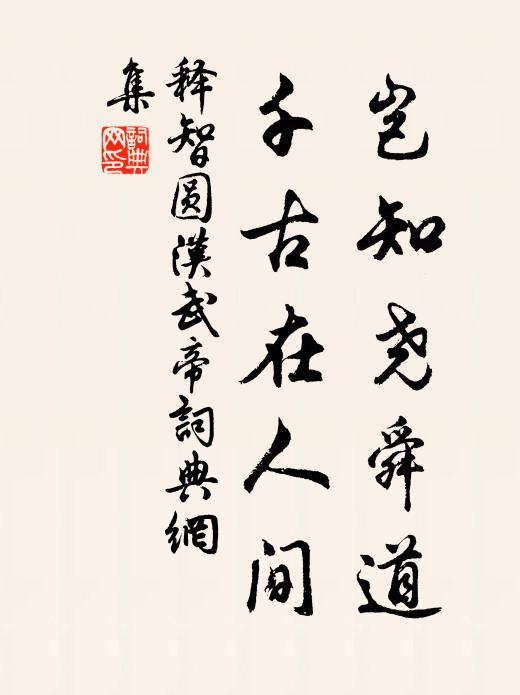 岂知尧舜道
千古在人间
释智圆漢武帝詞典網
集
詞典
网印